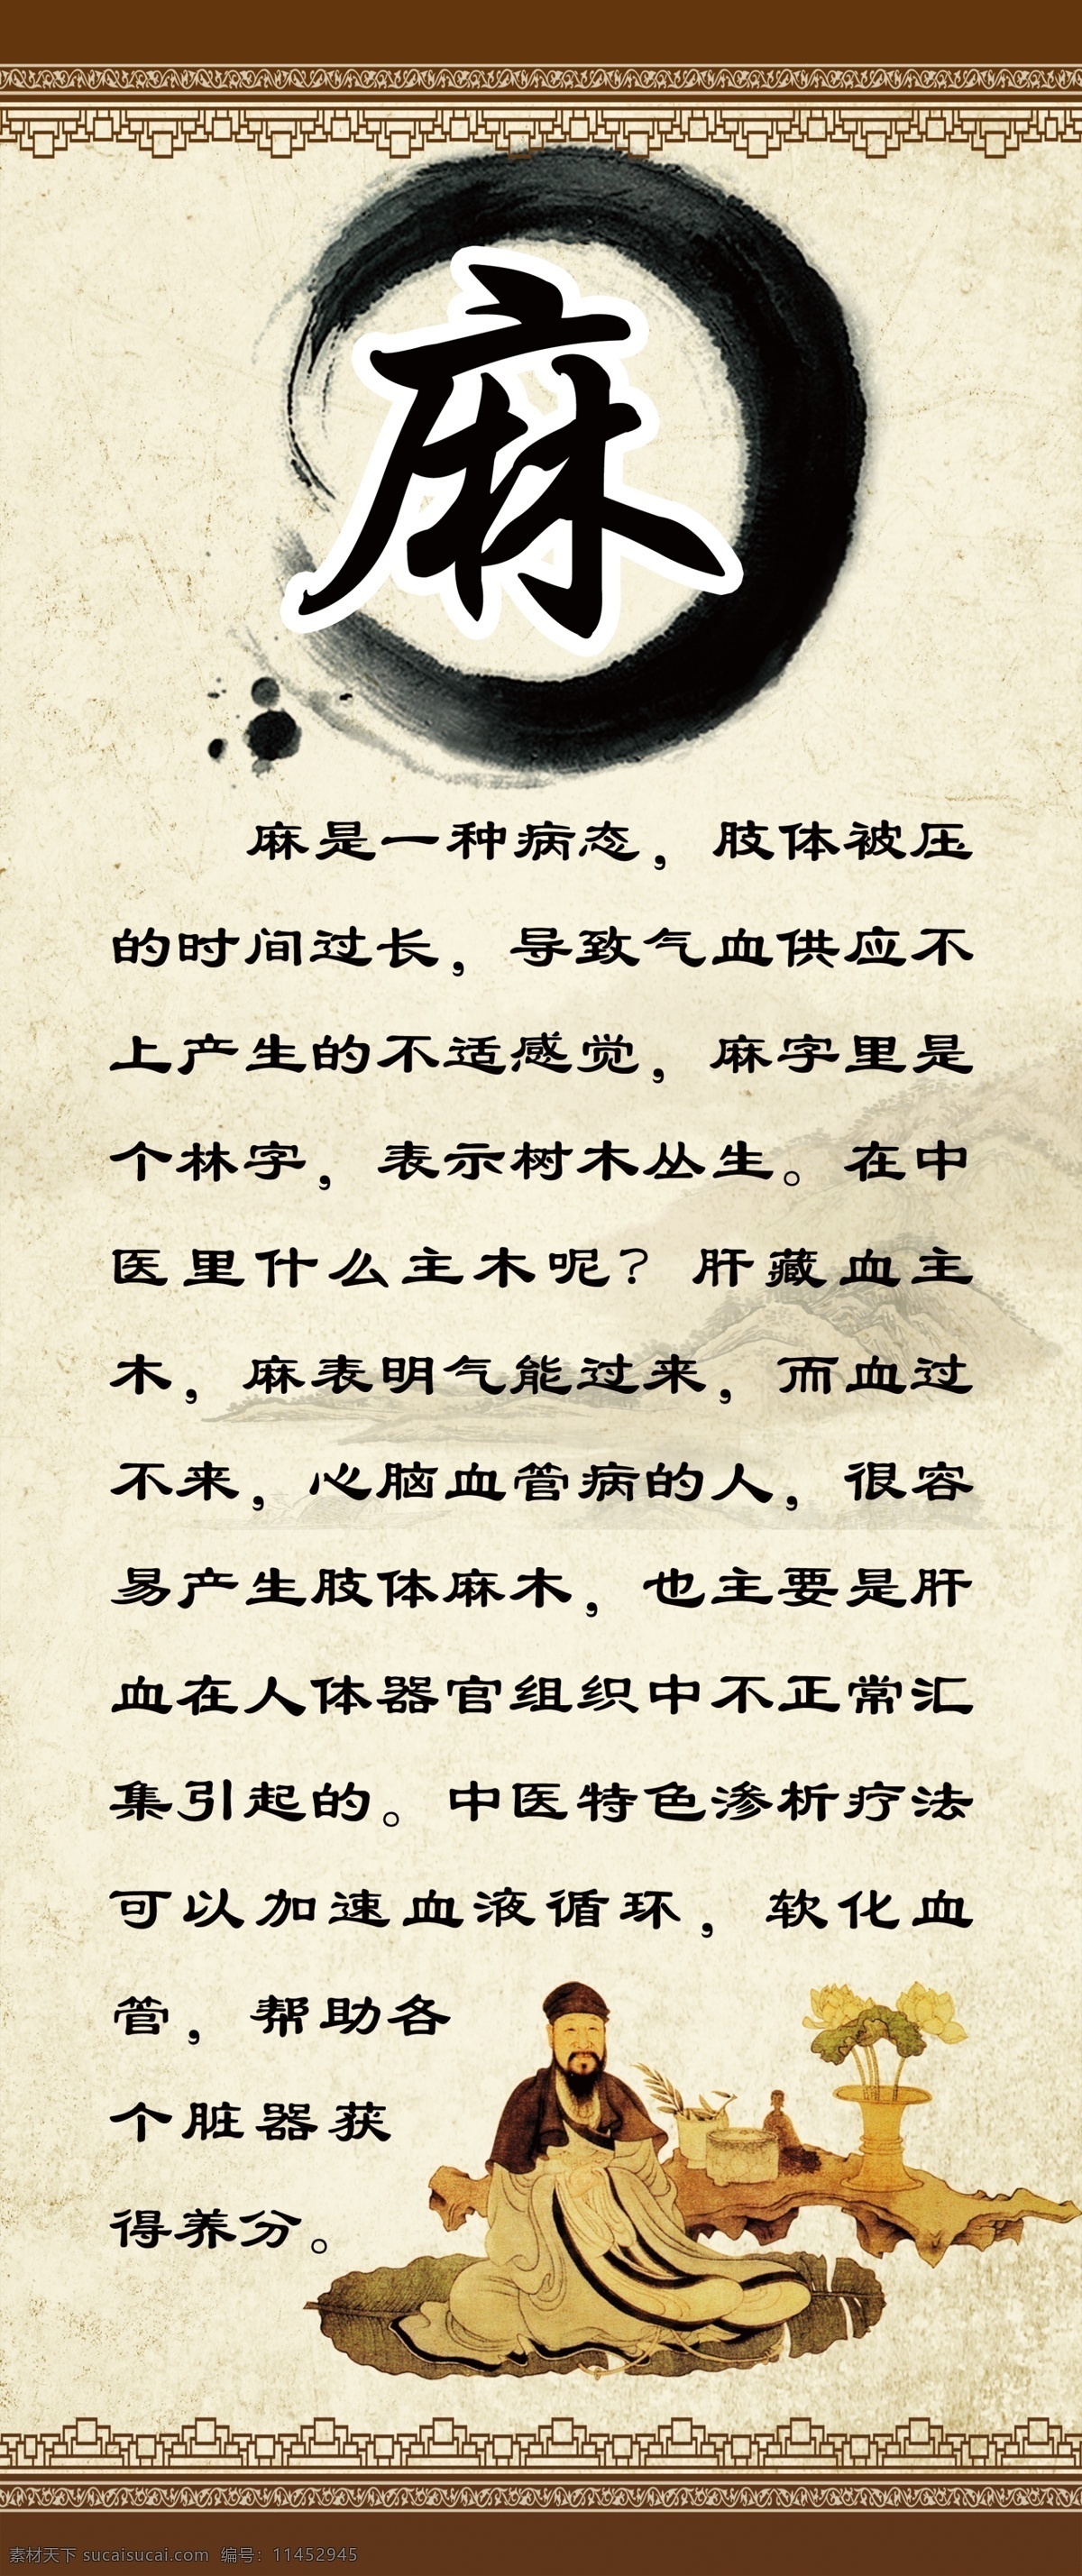 麻
麻是一种病态，肢体被压
的时间过长，导致气血供应不
上产生的不适感觉，麻字里是
个林字，表示树木丛生。在中
医里什么主木呢？肝藏血主
木，麻表明气能过来，而血过
不来，心脑血管病的人，很容
易产生肢体麻木，也主要是肝
血在人体器官组织中不正常汇
集引起的。中医特色渗析疗法
可以加速血液循环，软化血
管，帮助各
个脏器获
得养分。
素材天下 sucaisucai.com 编号：11452945